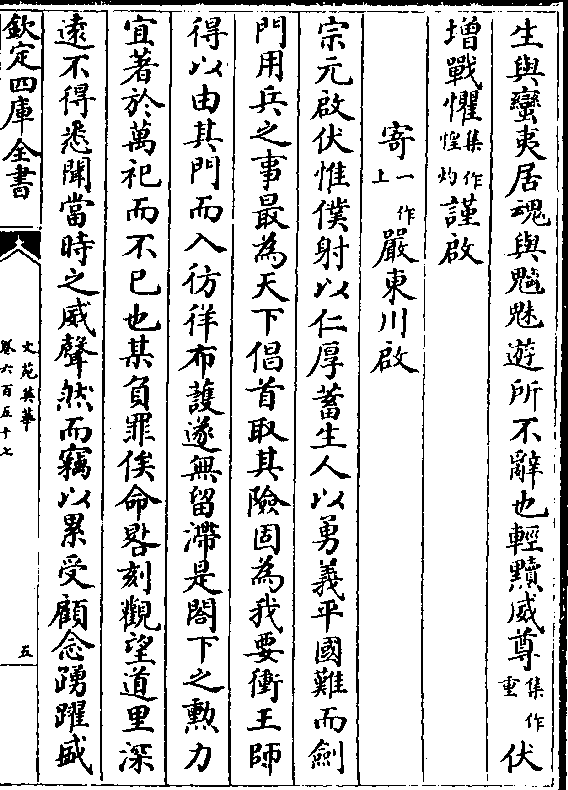 生與蠻夷居魂與魑魅遊所不辭也輕黷威尊集作重伏
增戰懼集作惶灼謹啟
寄一作上嚴東川啟
宗元啟伏惟僕射以仁厚蓄生人以勇義平國難而劍
門用兵之事最為天下倡首取其險固為我要衝王師
得以由其門而入彷徉布護遂無留滯是閤下之勲力
宜著於萬祀而不已也某負罪俟命晷刻觀望道里深
遠不得悉聞當時之威聲然而竊以累受顧念踴躍盛
欽定四庫全書
文苑英華
卷六百五十七
五